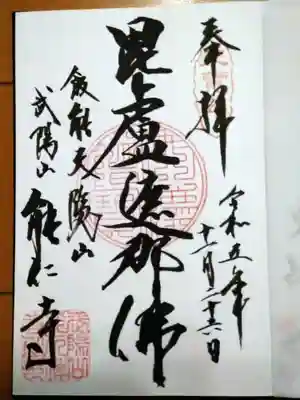 奉拝
令和五年
十一月二十六日
毘盧遮那佛
飯能天覧山
武陽山能仁寺